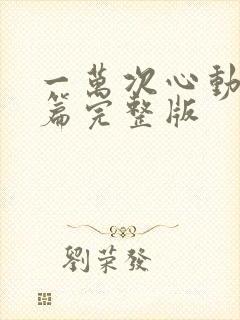 一萬次心動
篇完整版
劉荣發